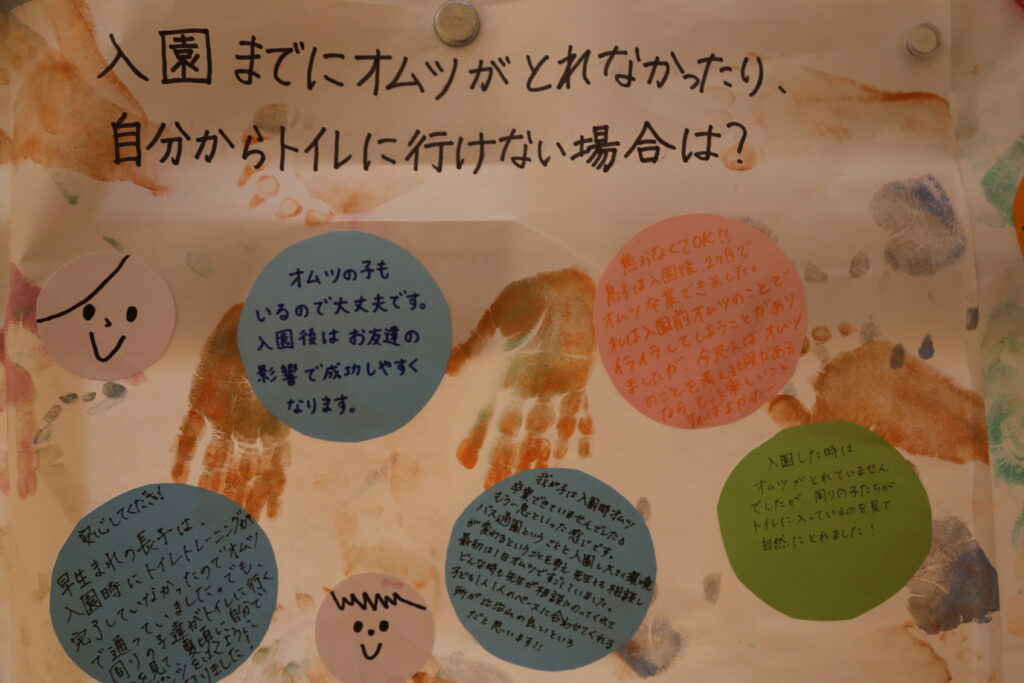 入園までにオムツがとれなかったり、
自分からトイレに行けない場合は?
オムツの子も
いるので大丈夫です。
入園後はお友達の
影響で成功しやすく
なります。
焦らなくてOK!!
息子は入園後、2ヶ月で
オムツ卒業できました。
私は入園前オムツのことで
イライラしてしまうことがあり
ましたが、今思えばオムツ
のことを考える時間がある
なら、もっと楽しいこと
すればよかった
安心してください!
早生まれの長子は、
入園時にトイレトレーニングが
完了していなかったのでオムツ
で通っていました。でも、
周りの子達がトイレに行く
を見て
我が子は入園時オムツ
卒業できていませんでした。
もう一息といった感じです。
バス通園ということと入園し大きく環境
が変わるということを考え先生とも相談し
最初は1日オムツですごしていました。
どんな時も先生が相談にのってくれて
子ども1人1人のペースに合わせてくれる
所が比治山の良いという
だと思います!!
入園した時は
オムツがとれていません
でしたが、周りの子たちが
トイレに入っているのを見て
自然にとれました!